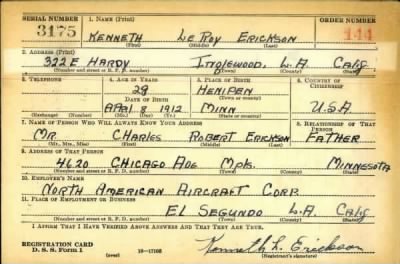 SERIAL NUMBER 1. NAME (Print) ORDER NUMBER
3175 KENNETH LE ROY ERICKSON 144
(First) (Middle) (Last)
2. ADDRESS (Print)
322 E HARDY INGLEWOOD, L.A CALIF
(Number and street or R. F. D. number) (Town) (County) (State)
3. TELEPHONE 4. AGE IN YEARS 5. PLACE OF BIRTH 6. COUNTRY OF CITIZENSHIP
29 HENIPEN
DATE OF BIRTH (Town or county)
APRI 8 1912 MINN U.S.A
(Exchange) (Number) (Mo.) (Day) (Yr.) (State or country)
7. NAME OF PERSON WHO WILL ALWAYS KNOW YOUR ADDRESS 8. RELATIONSHIP OF THAT PERSON
MR. CHARLES ROBERT ERICKSON FATHER
(Mr., Mrs., Miss) (First) (Middle) (Last)
9. ADDRESS OF THAT PERSON
4620 CHICAGO AVE MPLS. MINNESOTA
(Number and street or R. F. D. number) (Town) (County) (State)
10. EMPLOYER'S NAME
NORTH AMERICAN AIRCRAFT CORP.
11. PLACE OF EMPLOYMENT OR BUSINESS
EL SEGUNDO L.A. CALIF
(Number and street or R. F. D. number) (Town) (County) (State)
I AFFIRM THAT I HAVE VERIFIED ABOVE ANSWERS AND THAT THEY ARE TRUE.
REGISTRATION CARD
D. S. S. Form 1 (over) 16—17105 Kenneth L. Erickson
(Registrant's signature)